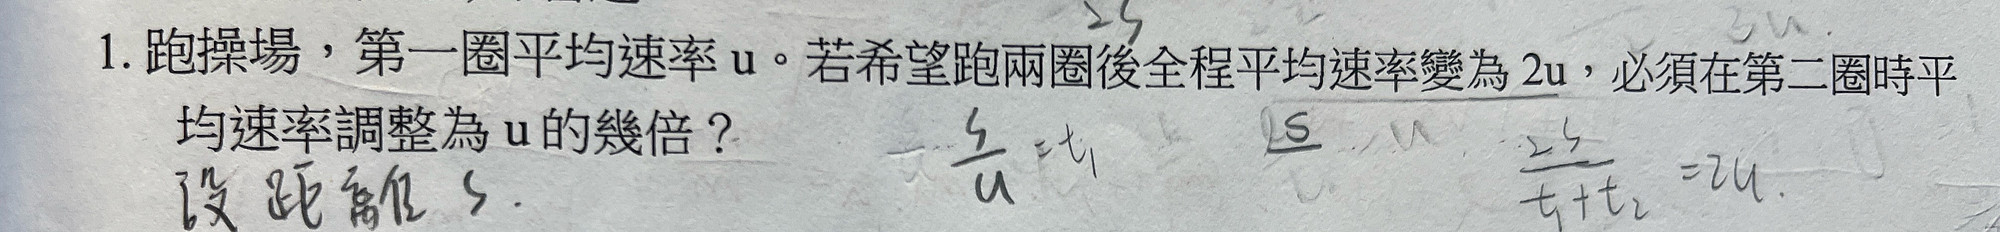 2S
1. 跑操場，第一圈平均速率 u。若希望跑兩圈後全程平均速率變為 2u，必須在第二圈時平
均速率調整為 u 的幾倍？
設距離 S.
S/u = t₁
S
2S/(t₁+t₂) = 2u.